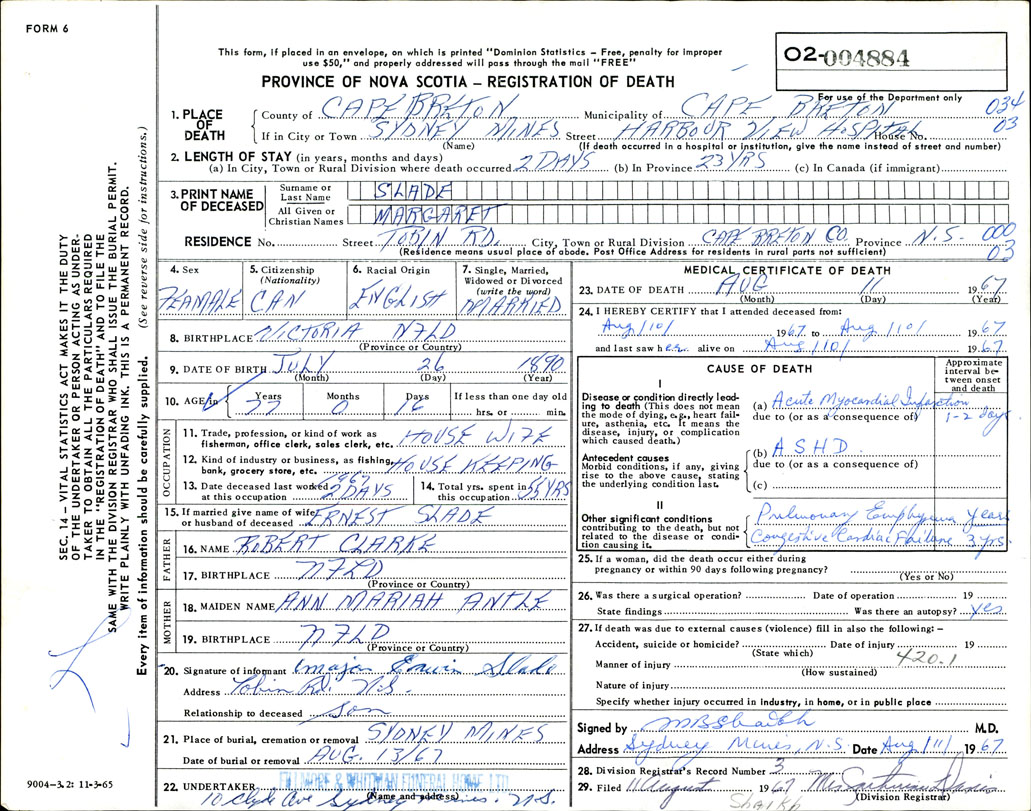 FORM 6
This form, if placed in an envelope, on which is printed "Dominion Statistics – Free, penalty for improper
use $50," and properly addressed will pass through the mail "FREE"
O2-004884
PROVINCE OF NOVA SCOTIA – REGISTRATION OF DEATH
For use of the Department only
034
03
1. PLACE OF DEATH
County of CAPE BRETON Municipality of CAPE BRETON
If in City or Town SYDNEY MINES Street HARBOUR VIEW HOSPITAL House No.
(Name) (If death occurred in a hospital or institution, give the name instead of street and number)
2. LENGTH OF STAY (in years, months and days)
(a) In City, Town or Rural Division where death occurred 2 DAYS (b) In Province 23 YRS (c) In Canada (if immigrant)
3. PRINT NAME OF DECEASED
Surname or Last Name SLADE
All Given or Christian Names MARGARET
RESIDENCE No. Street TOBIN RD. City, Town or Rural Division CAPE BRETON CO. Province N.S. 000
(Residence means usual place of abode. Post Office Address for residents in rural parts not sufficient) 03
4. Sex FEAMALE
5. Citizenship (Nationality) CAN
6. Racial Origin ENGLISH
7. Single, Married, Widowed or Divorced (write the word) MARRIED
8. BIRTHPLACE VICTORIA NFLD
(Province or Country)
9. DATE OF BIRTH JULY 26 1890
(Month) (Day) (Year)
10. AGE in Years Months Days If less than one day old
77 0 16 hrs. or min.
OCCUPATION
11. Trade, profession, or kind of work as fisherman, office clerk, sales clerk, etc. HOUSE WIFE
12. Kind of industry or business, as fishing, bank, grocery store, etc. HOUSE KEEPING
13. Date deceased last worked at this occupation 1967 2 DAYS
14. Total yrs. spent in this occupation 55 YRS
15. If married give name of wife or husband of deceased ERNEST SLADE
FATHER
16. NAME ROBERT CLARKE
17. BIRTHPLACE NFLD
(Province or Country)
MOTHER
18. MAIDEN NAME ANN MARIAH ANTLE
19. BIRTHPLACE NFLD
(Province or Country)
20. Signature of informant Major Erwin Slade
Address Tobin Rd. N.S.
Relationship to deceased Son
21. Place of burial, cremation or removal SYDNEY MINES
Date of burial or removal AUG. 13/67
22. UNDERTAKER FILLMORE & WHITMAN FUNERAL HOME LTD.
(Name and address)
10 Clyde Ave Sydney Mines. N.S.
MEDICAL CERTIFICATE OF DEATH
23. DATE OF DEATH AUG 11 1967
(Month) (Day) (Year)
24. I HEREBY CERTIFY that I attended deceased from:
Aug /10/ 1967 to Aug /10/ 1967
and last saw her alive on Aug /10/ 1967
CAUSE OF DEATH
Approximate interval between onset and death
I
Disease or condition directly leading to death (This does not mean the mode of dying, e.g., heart failure, asthenia, etc. It means the disease, injury, or complication which caused death.)
(a) Acute Myocardial Infarction 1-2 days
due to (or as a consequence of)
Antecedent causes
Morbid conditions, if any, giving rise to the above cause, stating the underlying condition last.
(b) ASHD
due to (or as a consequence of)
(c)
II
Other significant conditions contributing to the death, but not related to the disease or condition causing it.
Pulmonary Emphysema years
Congestive Cardiac Failure 3 yrs.
25. If a woman, did the death occur either during pregnancy or within 90 days following pregnancy?
(Yes or No)
26. Was there a surgical operation? Date of operation 19
State findings Was there an autopsy? Yes
27. If death was due to external causes (violence) fill in also the following: –
Accident, suicide or homicide? Date of injury 19
(State which) 420.1
Manner of injury
(How sustained)
Nature of injury
Specify whether injury occurred in industry, in home, or in public place
Signed by M B Shaikh M.D.
Address Sydney Mines, N.S. Date Aug /11/ 1967
28. Division Registrar's Record Number 3
29. Filed 11 August 1967 Mrs
(Division Registrar)
Shaikh
SEC. 14 – VITAL STATISTICS ACT MAKES IT THE DUTY
OF THE UNDERTAKER OR PERSON ACTING AS UNDER-
TAKER TO OBTAIN ALL THE PARTICULARS REQUIRED
IN THE "REGISTRATION OF DEATH" AND TO FILE THE
SAME WITH THE DIVISION REGISTRAR WHO SHALL ISSUE BURIAL PERMIT.
WRITE PLAINLY WITH UNFADING INK. THIS IS A PERMANENT RECORD.
Every item of information should be carefully supplied. (See reverse side for instructions.)
9004-3.2: 11-3-65